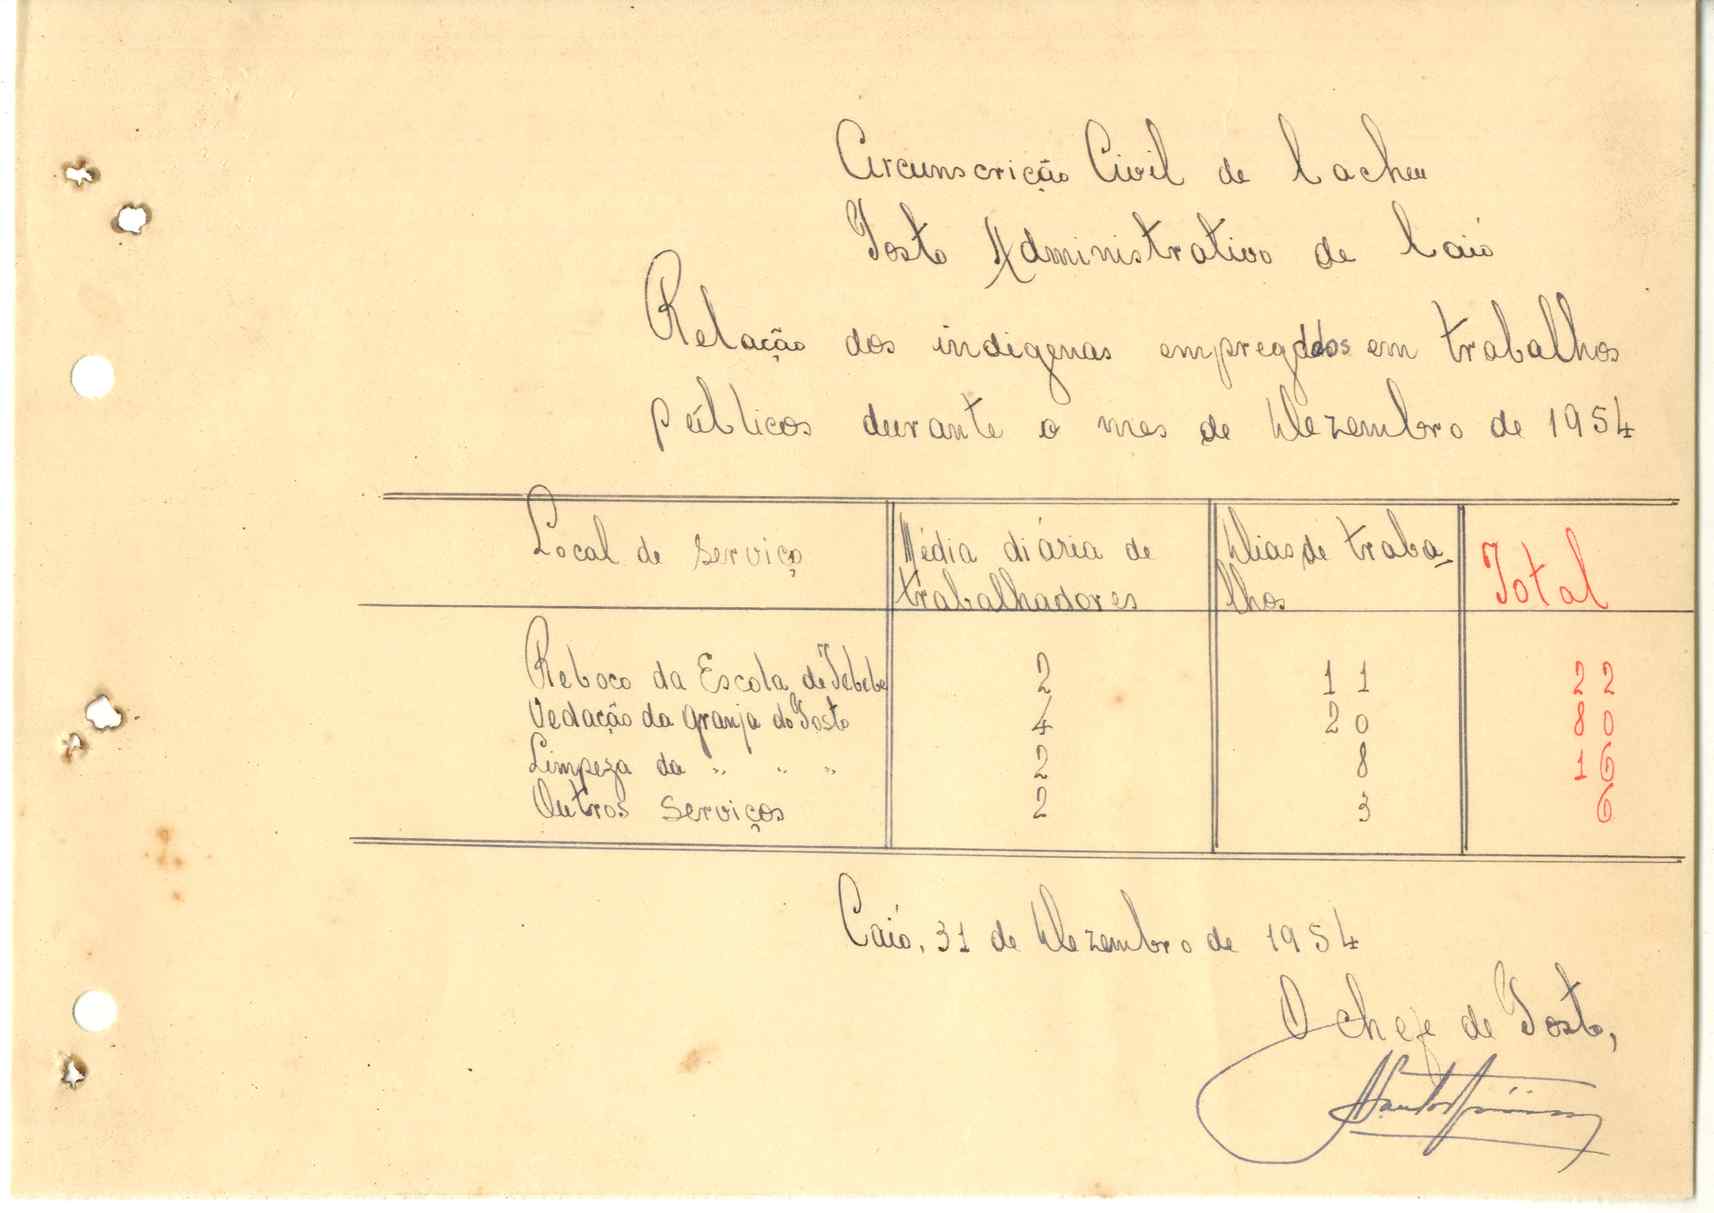 Circunscrição Civil de Cacheu
Posto Administrativo de Caió
Relação dos indigenas empregados em trabalhos
públicos durante o mes de Dezembro de 1954
Local de serviço Média diária de Dias de traba- Total
trabalhadores lhos
Reboco da Escola de Tebebe 2 11 22
Vedação da granja do Posto 4 20 80
Limpeza da " " " 2 8 16
Outros serviços 2 3 6
Caió, 31 de Dezembro de 1954
O chefe de Posto,